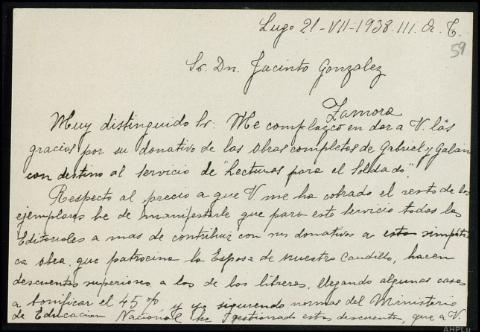 Lugo 21-VII-1938. III. A. T.
59
Sr. Dn. Jacinto Gonzalez
Zamora
Muy distinguido Sr: Me complazco en dar a V. las
gracias por su donativo de las obras completas de Gabriel y Galan
con destino al servicio de "Lecturas para el Soldado".
Respecto al precio a que V me ha cobrado el resto de los
ejemplares he de manifestarle que para este servicio todas las
Editoriales a mas de contribuir con sus donativos a esta simpáti
ca obra, que patrocina la Esposa de nuestro Caudillo, hacen
descuentos superiores a los de los libreros, llegando algunas casas
a bonificar el 45% y yo siguiendo normas del Ministerio
de Educacion Nacional he gestionado estos descuentos, que a V.
AHPLu